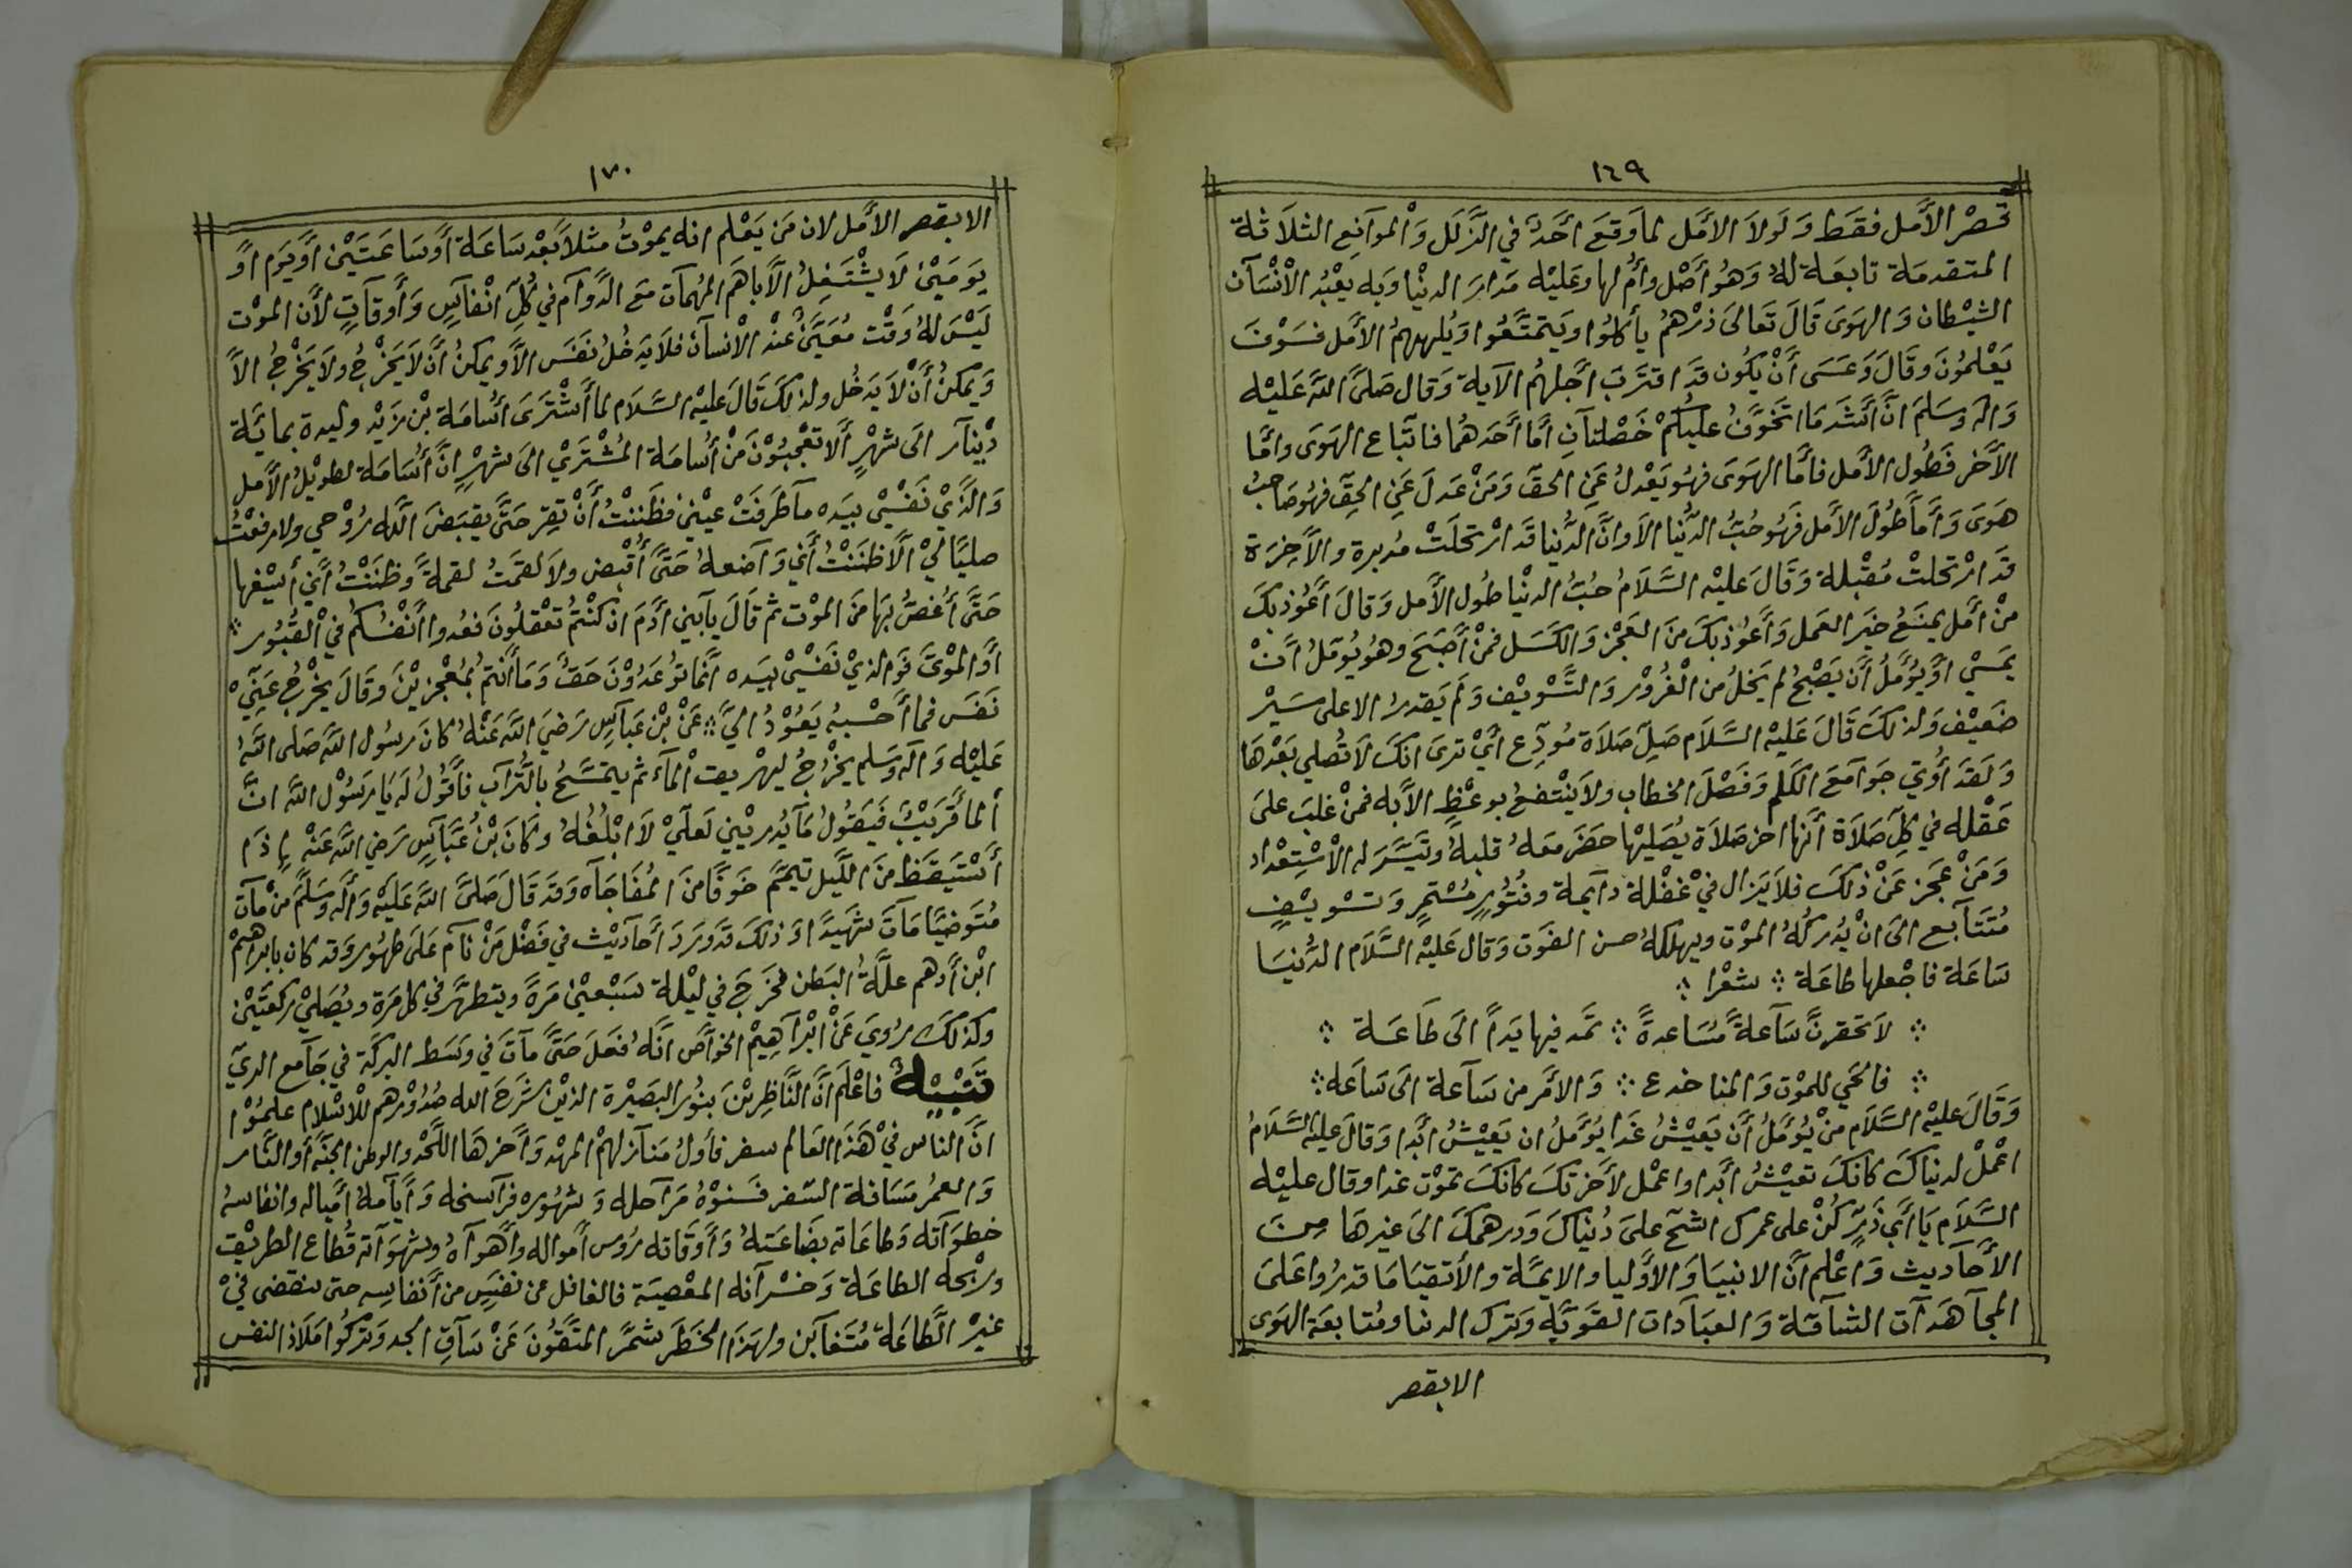 ١٦٩
قصْر الأَمل فقَط وَلَولاَ الاَمَل لماوَقعَ اَحَدٌ في الزَّلَل وَالْموَآنع الثلاَثة
المتقدمَة تابعَة لهُ وَهُو أَصْل وأُم لها وعَليْه مَدارَ الدنْيا وَبه يعْبُد الاْنْسَآن
الشيْطان وَالهوَى قَالَ تَعالىَ ذرْهمُ يأكلوُا ويَتمَتَّعُوا وَيُلههمُ الأَمَل فسَوْفَ
يَعْلمُونَ وقَالَ وَعَسَى أَنْ يكُون قدَ اقترَبَ أَجَلهُم الآية وَقال صَلىَّ اللهَ عَليْه
وَاله وسَلمَ انَّ أَشَدَ مَا اتخوَّفُ عليْكُمْ خَصْلتآنِ أَمَّا أَحَدهُما فاتّباع الهوَى وامَّا
الأَخر فَطُول الأَمل فامَّا الهوَى فهُو يَعْدلُ عَنِ الحقَ وَمَنْ عَدلَ عَنِ الحقِّ فهُو صَاحبُ
هَوَى وَأَمآ طُولَ الأَمل فَهُو حُبُّ الدُّنيا الاَوانَّ الدُّنيا قَد ارْتحَلتْ مُدبرة والأَخِرَة
قدَ ارْتحلتْ مُقْبلة وَقَالَ عَليْه السَّلاَمُ حُبُّ الدنْيا طُول الأَمل وَقالَ أَعُوذ بكَ
منْ أَمَل يمنَعُ خيَر العَمل وَأَعوُذ بكَ منَ العَجْز وَالكَسَل فمنْ أَصْبَحَ وهُو يُوَملُ اَنْ
يمَسْي اوَ يُؤَمَّلُ أَن يَصْبحُ لم يَخلُ من الْغُروْر وَالتَّسْويْف وَلَم يَقدرْ الاعلى سَيْر
ضعَيْف وَلذلكَ قَالَ عَليْه السَّلاَم صَلِّ صَلاَة مُودّع أَيْ ترىَ انكَ لاَ تُصَلي بَعْدهَا
وَلَقدَ أُوتيَ جَوآمعَ الكَلم وَفصْلَ الخطاب ولاَ ينْتفعُ بوعْظ الأَبه فمنْ غلبَ علىَ
عَقْله في كلّ صَلاَة أَنها اخر صَلاَة يُصَليْها حَضرَ مَعهُ قلبهُ وتَيَسَّرَ له الْاسْتِعْداد
وَمَنْ عَجزَ عَنْ ذلكَ فلاَ يَزال فيْ غفْلة دآيمة وفُتُور مُسْتمرٍ وَتسْويْفٍ
مُتتَآبع الىَ انْ يُدركُهُ الموْت ويهلكهُ حسن الفَوت وَقال عَليْه السَّلاَم الدُّنيَا
سَاعَة فاجْعلها طاعَة ؞ شعْرا ؞
؞ لاَتحَقرنَّ سَآعةً مُسَاعدةً ؞ تمَد فيها يَداً الىَ طَاعَة ؞
؞ فالحَي للموْت وَالمنا خدع ؞ وَالاَمَر من سَآعة الىَ سَاعَه ؞
وَقَالَ عليْه السَّلاَم منْ يُؤَمَّلُ أَن يَعيْشُ غدَا يُؤَمَّلُ ان يَعيْشُ ابَدا وَقالَ عليْه السَّلاَمُ
اعْملْ لدنياكَ كانكَ تعيْشُ أَبدا واعْمل لأَخرَتكَ كانكَ تموْت غدا وقال عليْه
السَّلاَم يَا أَبي ذَرّ كنْ على عمرك اشحّ علىَ دُنياكَ وَدرهمكَ الىَ غيرهَا مِنَ
الأَحَآديث وَاعْلم أَنَّ الانبيَا وَالأَوليا والايمَّة والأَتقيَا مَا قدرُوا عَلىَ
المجآهَدآت الشآقة وَالعبَآدات القوَيَّة وَترك الدنيا ومُتابعَة الهوَى
الابقصر
١٧٠
الابقصر الأَمل لان مَن يَعْلم انه يموْتُ مثلاً بَعْد سَاعَة أَوسَاعَتَيْن أَو يَوم اوَ
يَومَيْن لاَ يشْتَغلُ الاَّ باهَم المُهمآت مَع الدَّوآم في كُلّ انْفآسٍ وَأَوقآتٍ لأَن الموْت
ليْسَ لهُ وَقْت مُعَيَّنٌ عنْد الاْنسآن فلاَ يَدخُلُ نَفسَ الاَّ ويمكنُ أَن لاَ يَخْرجُ ولاَ يَخْرجُ الاَّ
وَيمكنُ أَنْ لاَ يَدخُل ولذلكَ قَالَ عَليْه السَّلاَم لما أَشْترَى أُسَامَة بْن زَيْد وليدة بمائَة
دْينآر الىَ شهْرٍ أَلاَ تعْجبُوْنَ منْ أُسامَة المُشْترَيْ الىَ شهْرٍ انَّ أُسَامَة لطويْل الأَمل
وَالذَّيْ نَفْسيْ بيَده مآ طَرفتَ عيْنيْ فظَننْتُ أَنْ تقِر حَتَّى يَقبَضَ الله رُوْحي ولا رفعْتُ
حَتَّى أَغصُّ بهَا منَ الموْت ثم قَالَ يآبني ادَمَ ان كنْتُمْ تعْقلُونَ فعُدوا أَنْفُسَكُم في الْقبُور ؞
أَو الموْتَى فَو الذيْ نَفسْيْ بيَده انَّمَا توُعَدُوْنَ حَقٌ وَمَا أَنتمُ بمُعْجزيْنَ وقَالَ يخْرُج عَنّيْ
نَفسَ فما أَحْسبهُ يَعُوْدُ اليَّ ؞ عَنْ بْن عَبآسٍ رَضيَ اللهَ عَنْهُ كانَ رسُول اللهَ صَلى اللهُ
عَليْه وَاله وسَلم يخْرُجُ ليهْريقَ الْمآء ثم يتمَسَّحُ بالتُّرآب فأَقُولُ لَه يَا رَسُوْل الله انَّ
أَلمآ قرَيْبٌ فَيقُولُ مآ يُدريْني لَعلّيْ لاَ ابْلغُهُ وَكَانَ بْنُ عَبَّآسٍ رَضي اللهَ عَنْه إذَا
أَسْتيَقظَ منَ اللَّيل تيمَّم خَوفًا منَ المُفَاجَآه وَقدَ قَالَ صَلىَّ اللهَ عَليْه وَأَله وَسَلَّم منْ مآت
مُتَوَضيًا مَاتَ شهيَدًا وَذلكَ قدَ وَردَ أَحآديْث في فَضْل مَنْ نآم عَلىَ طهُور وَقد كان بابراهيمْ
ابْن أَدهم علَّةُ البَطن فخَرجَ في ليْلة سَبْعيْن مَرةً ويتطهَّر في كل مَرة ويُصَليْ ركعَتيْن
وكذلكَ رُويَ عَنْ ابْرآهِيْم الخوَّاص انَّهُ فعَلَ حَتَّى مآتَ في وسَط البركَة في جَآمع الريّ
تَنْبيْهٌ فاعْلَم أَنَّ النَّاظِريْنَ بنوُر البَصيْرة الذيْن شَرحَ الله صُدُوْرهم للاسْلام علمُوْا
انَّ الناس فيْ هَذا العَالم سفر فأَولُ مَنآزلهمْ المهْد وَأَخرهَا اللَّحْد والوطن الجنَّة أَو النَّار
وَالعمُر مَسَافة السَّفر فسَنوْهُ مَرآحله وَشهُوره فرآسخه وَأَيآمهُ أَمْياله وانفاسهُ
خطوَآته وَطاعَاته بضَاعَتهُ وَأَوقَاته رؤُس أَمواله وَأَهوآهُ وشهوَآته قُطاع الطريْق
وربْحه الطاعَة وَخسْرآنه المعْصيَة فالغافل عن نفسٍ من أَنفاسه حتى ينقضى فيْ
غيْر الطَّاعَة مُتغآبن ولهذَا الخَطَر شمَّر المتَّقُونَ عَنْ سَآقِ الجد وَترَكُوا مَلاَذ النفس